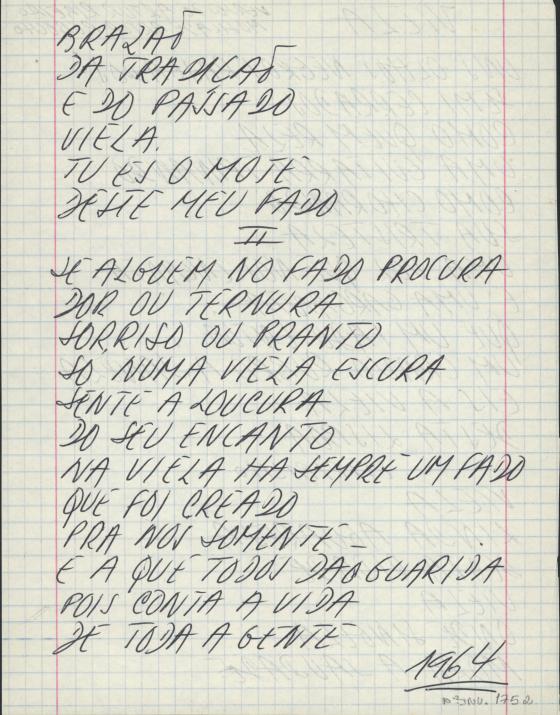 BRAZAÕ
DA TRADICAÕ
E DO PASSADO
VIELA.
TU ES O MOTE
DESTE MEU FADO
II
SE ALGUEM NO FADO PROCURA
DOR OU TERNURA
SORRISO OU PRANTO
SO, NUMA VIELA ESCURA
SENTE A LOUCURA
DO SEU ENCANTO
NA VIELA HA SEMPRE UM FADO
QUE FOI CREADO
PRA NOS SOMENTE
E A QUE TODOS DAÕ GUARIDA
POIS CONTA A VIDA
DE TODA A GENTE
1964
INV. 1752